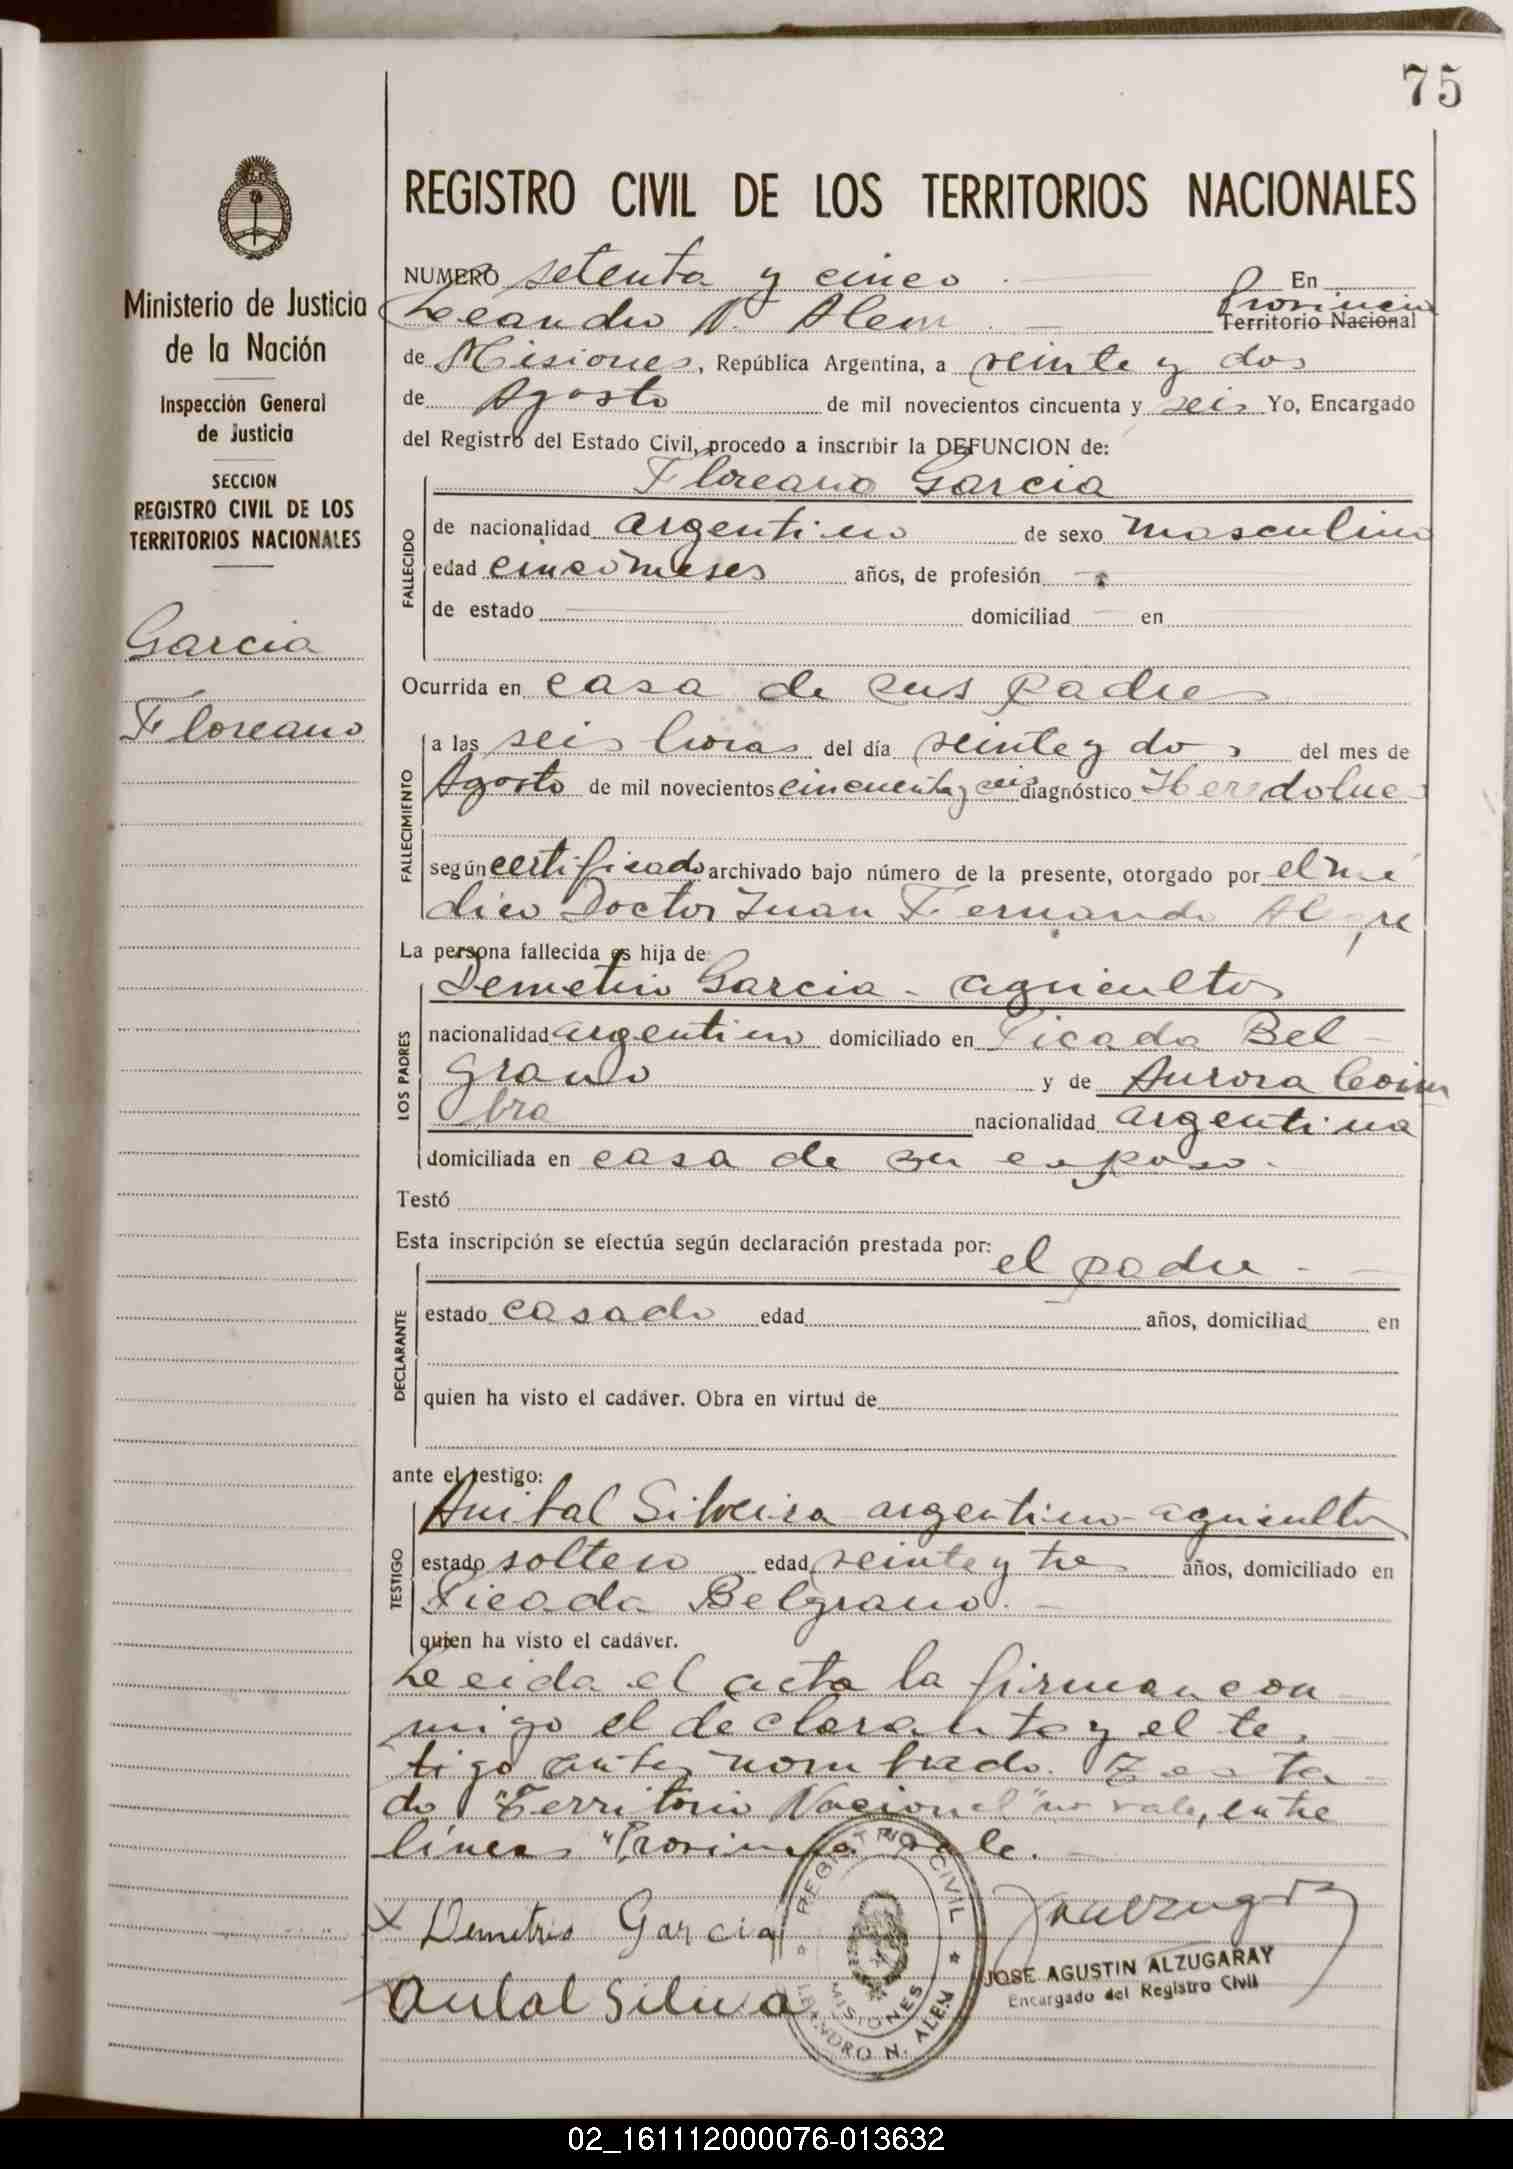 75
REGISTRO CIVIL DE LOS TERRITORIOS NACIONALES
Ministerio de Justicia
de la Nación
Inspección General
de Justicia
SECCION
REGISTRO CIVIL DE LOS
TERRITORIOS NACIONALES
Garcia
Floreano
NUMERO setenta y cinco En
Leandro N. Alem Provincia
Territorio Nacional
de Misiones, República Argentina, a veinte y dos
de Agosto de mil novecientos cincuenta y seis Yo, Encargado
del Registro del Estado Civil, procedo a inscribir la DEFUNCION de:
Floreano Garcia
FALLECIDO
de nacionalidad argentino de sexo masculino
edad cinco meses años, de profesión
de estado domiciliad en
Ocurrida en casa de sus padres
FALLECIMIENTO
a las seis horas del día veinte y dos del mes de
Agosto de mil novecientos cincuenta y seis diagnóstico Heredolues
según certificado archivado bajo número de la presente, otorgado por el mé
dico Doctor Juan Fernando Alegre
La persona fallecida es hija de:
LOS PADRES
Demetrio Garcia - agricultor
nacionalidad argentino domiciliado en Picada Bel-
grano y de Aurora Coim
bra nacionalidad argentina
domiciliada en casa de su esposo.-
Testó
Esta inscripción se efectúa según declaración prestada por:
el padre.-
DECLARANTE
estado casado edad años, domiciliad en
quien ha visto el cadáver. Obra en virtud de
ante el testigo:
TESTIGO
Anibal Silveira argentino-agricultor
estado soltero edad veinte y tres años, domiciliado en
Picada Belgrano.-
quien ha visto el cadáver.
Leida el acta la firman con-
migo el declarante y el tes-
tigo antes nombrado. Testa-
do "Territorio Nacional" no vale, entre
lineas "Provincia" vale.-
x Demetrio Garcia
JOSE AGUSTIN ALZUGARAY
Encargado del Registro Civil
REGISTRO CIVIL
MISIONES
LEANDRO N. ALEM
02_161112000076-013632